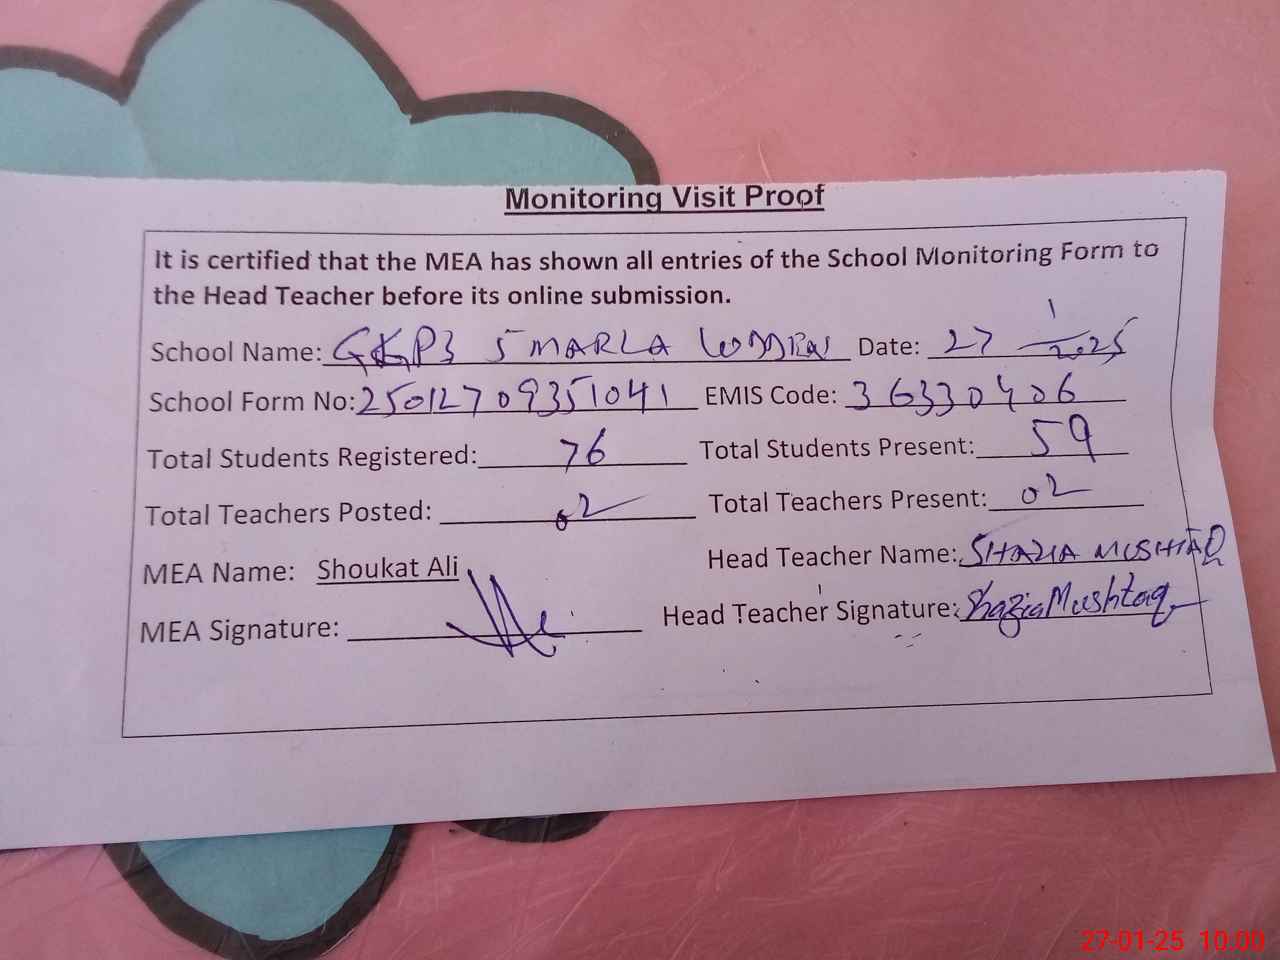 Monitoring Visit Proof
It is certified that the MEA has shown all entries of the School Monitoring Form to
the Head Teacher before its online submission.
School Name: GKPS 5 MARLA LUDDEN Date: 27/1/2025
School Form No: 25012709351041 EMIS Code: 36330406
Total Students Registered: 76 Total Students Present: 59
Total Teachers Posted: 02 Total Teachers Present: 02
MEA Name: Shoukat Ali Head Teacher Name: SHAZIA MUSHTAQ
MEA Signature: Head Teacher Signature: Shazia Mushtaq
27-01-25 10:00